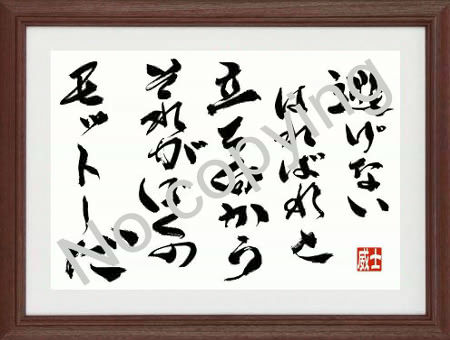 逃げない
はればれと
立ち向かう
それがぼくの
モットーだ
威士
No copying